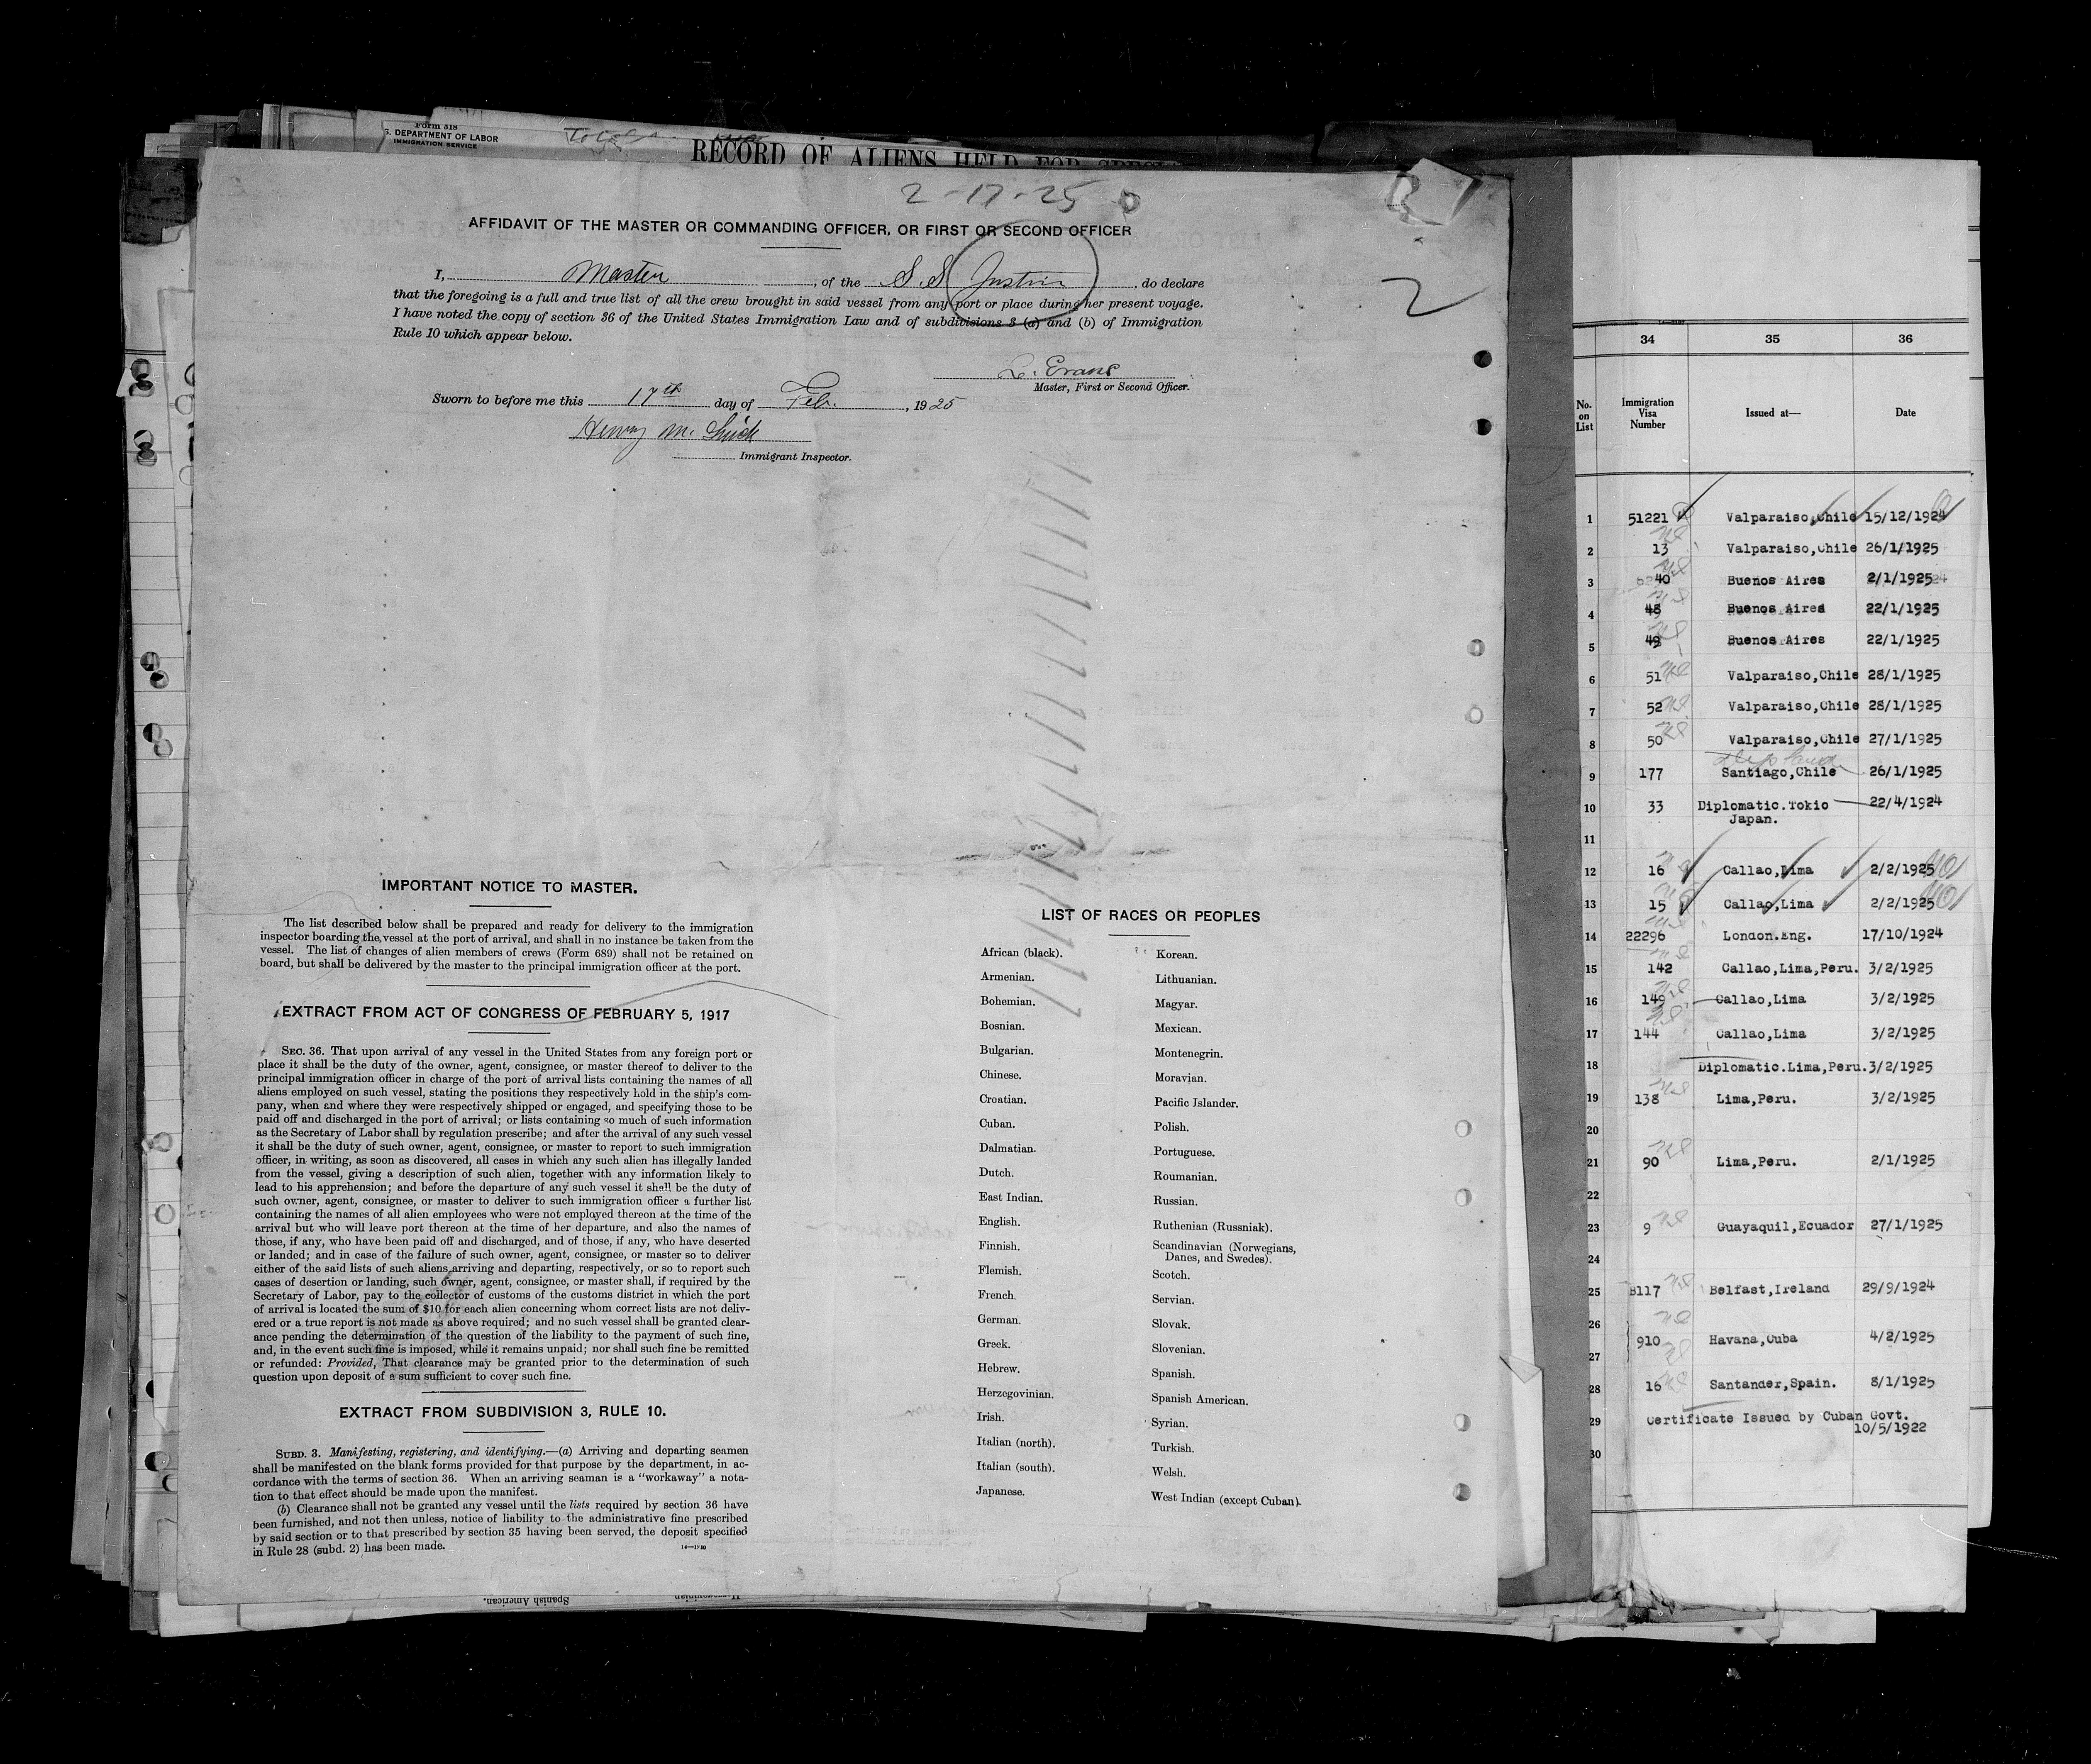 Form 518
S. DEPARTMENT OF LABOR
IMMIGRATION SERVICE
RECORD OF ALIENS HELD FOR SPECI
2-17-25
AFFIDAVIT OF THE MASTER OR COMMANDING OFFICER, OR FIRST OR SECOND OFFICER
I, Master, of the S.S Justin, do declare
that the foregoing is a full and true list of all the crew brought in said vessel from any port or place during her present voyage.
I have noted the copy of section 36 of the United States Immigration Law and of subdivisions 3 (a) and (b) of Immigration
Rule 10 which appear below.
2
Evans
Master, First or Second Officer.
Sworn to before me this 17th day of Feb., 1925
Henry M.
Immigrant Inspector.
IMPORTANT NOTICE TO MASTER.
The list described below shall be prepared and ready for delivery to the immigration
inspector boarding the vessel at the port of arrival, and shall in no instance be taken from the
vessel. The list of changes of alien members of crews (Form 689) shall not be retained on
board, but shall be delivered by the master to the principal immigration officer at the port.
EXTRACT FROM ACT OF CONGRESS OF FEBRUARY 5, 1917
SEC. 36. That upon arrival of any vessel in the United States from any foreign port or
place it shall be the duty of the owner, agent, consignee, or master thereof to deliver to the
principal immigration officer in charge of the port of arrival lists containing the names of all
aliens employed on such vessel, stating the positions they respectively hold in the ship's com-
pany, when and where they were respectively shipped or engaged, and specifying those to be
paid off and discharged in the port of arrival; or lists containing so much of such information
as the Secretary of Labor shall by regulation prescribe; and after the arrival of any such vessel
it shall be the duty of such owner, agent, consignee, or master to report to such immigration
officer, in writing, as soon as discovered, all cases in which any such alien has illegally landed
from the vessel, giving a description of such alien, together with any information likely to
lead to his apprehension; and before the departure of any such vessel it shall be the duty of
such owner, agent, consignee, or master to deliver to such immigration officer a further list
containing the names of all alien employees who were not employed thereon at the time of the
arrival but who will leave port thereon at the time of her departure, and also the names of
those, if any, who have been paid off and discharged, and of those, if any, who have deserted
or landed; and in case of the failure of such owner, agent, consignee, or master so to deliver
either of the said lists of such aliens arriving and departing, respectively, or so to report such
cases of desertion or landing, such owner, agent, consignee, or master shall, if required by the
Secretary of Labor, pay to the collector of customs of the customs district in which the port
of arrival is located the sum of $10 for each alien concerning whom correct lists are not deliv-
ered or a true report is not made as above required; and no such vessel shall be granted clear-
ance pending the determination of the question of the liability to the payment of such fine,
and, in the event such fine is imposed, while it remains unpaid; nor shall such fine be remitted
or refunded: Provided, That clearance may be granted prior to the determination of such
question upon deposit of a sum sufficient to cover such fine.
EXTRACT FROM SUBDIVISION 3, RULE 10.
SUBD. 3. Manifesting, registering, and identifying.—(a) Arriving and departing seamen
shall be manifested on the blank forms provided for that purpose by the department, in ac-
cordance with the terms of section 36. When an arriving seaman is a "workaway" a nota-
tion to that effect should be made upon the manifest.
(b) Clearance shall not be granted any vessel until the lists required by section 36 have
been furnished, and not then unless, notice of liability to the administrative fine prescribed
by said section or to that prescribed by section 35 having been served, the deposit specified
in Rule 28 (subd. 2) has been made.
LIST OF RACES OR PEOPLES
African (black).
Armenian.
Bohemian.
Bosnian.
Bulgarian.
Chinese.
Croatian.
Cuban.
Dalmatian.
Dutch.
East Indian.
English.
Finnish.
Flemish.
French.
German.
Greek.
Hebrew.
Herzegovinian.
Irish.
Italian (north).
Italian (south).
Japanese.
Korean.
Lithuanian.
Magyar.
Mexican.
Montenegrin.
Moravian.
Pacific Islander.
Polish.
Portuguese.
Roumanian.
Russian.
Ruthenian (Russniak).
Scandinavian (Norwegians,
Danes, and Swedes).
Scotch.
Servian.
Slovak.
Slovenian.
Spanish.
Spanish American.
Syrian.
Turkish.
Welsh.
West Indian (except Cuban).
Spanish American.
Herzegovinian
34 35 36
No. on List Immigration Visa Number Issued at— Date
1 51221 Valparaiso,Chile 15/12/1924
2 13 Valparaiso,Chile 26/1/1925
3 40 Buenos Aires 2/1/1925
4 48 Buenos Aires 22/1/1925
5 49 Buenos Aires 22/1/1925
6 51 Valparaiso,Chile 28/1/1925
7 52 Valparaiso,Chile 28/1/1925
8 50 Valparaiso,Chile 27/1/1925
9 177 Santiago,Chile 26/1/1925
10 33 Diplomatic.Tokio 22/4/1924
Japan.
11
12 16 Callao,Lima 2/2/1925
13 15 Callao,Lima 2/2/1925
14 22296 London.Eng. 17/10/1924
15 142 Callao,Lima,Peru. 3/2/1925
16 149 Callao,Lima 3/2/1925
17 144 Callao,Lima 3/2/1925
18 Diplomatic.Lima,Peru. 3/2/1925
19 138 Lima,Peru. 3/2/1925
20
21 90 Lima,Peru. 2/1/1925
22
23 9 Guayaquil,Ecuador 27/1/1925
24
25 8117 Belfast,Ireland 29/9/1924
26
910 Havana,Cuba 4/2/1925
27
28 16 Santander,Spain. 8/1/1925
29 Certificate Issued by Cuban Govt.
10/5/1922
30